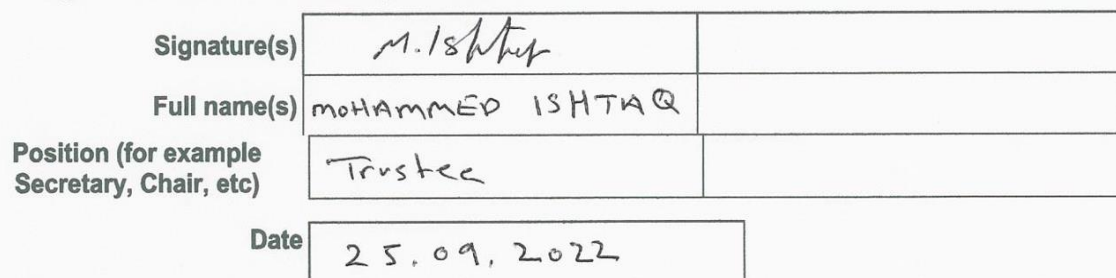 Signature(s) M. Ishtaq
Full name(s) MOHAMMED ISHTAQ
Position (for example
Secretary, Chair, etc) Trustee
Date 25.09.2022